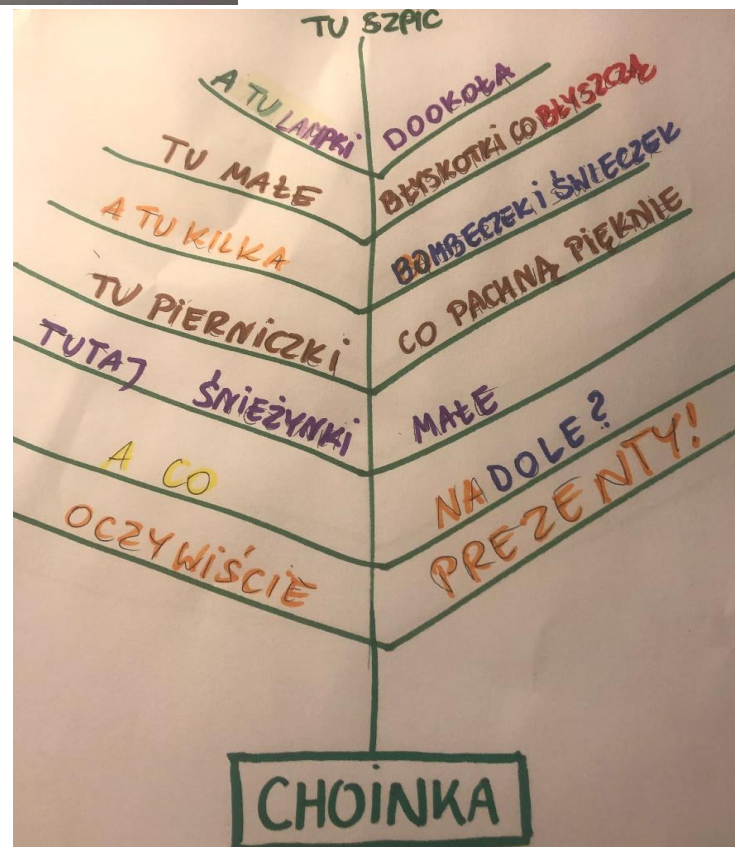 TU SZPIC
A TU LAMPKI DOOKOŁA
TU MAŁE BŁYSKOTKI CO BŁYSZCZĄ
A TU KILKA BOMBECZEK i ŚWIECZEK
TU PIERNICZKI CO PACHNĄ PIĘKNIE
TUTAJ ŚNIEŻYNKI MAŁE
A CO NA DOLE?
OCZYWIŚCIE PREZENTY!
CHOiNKA